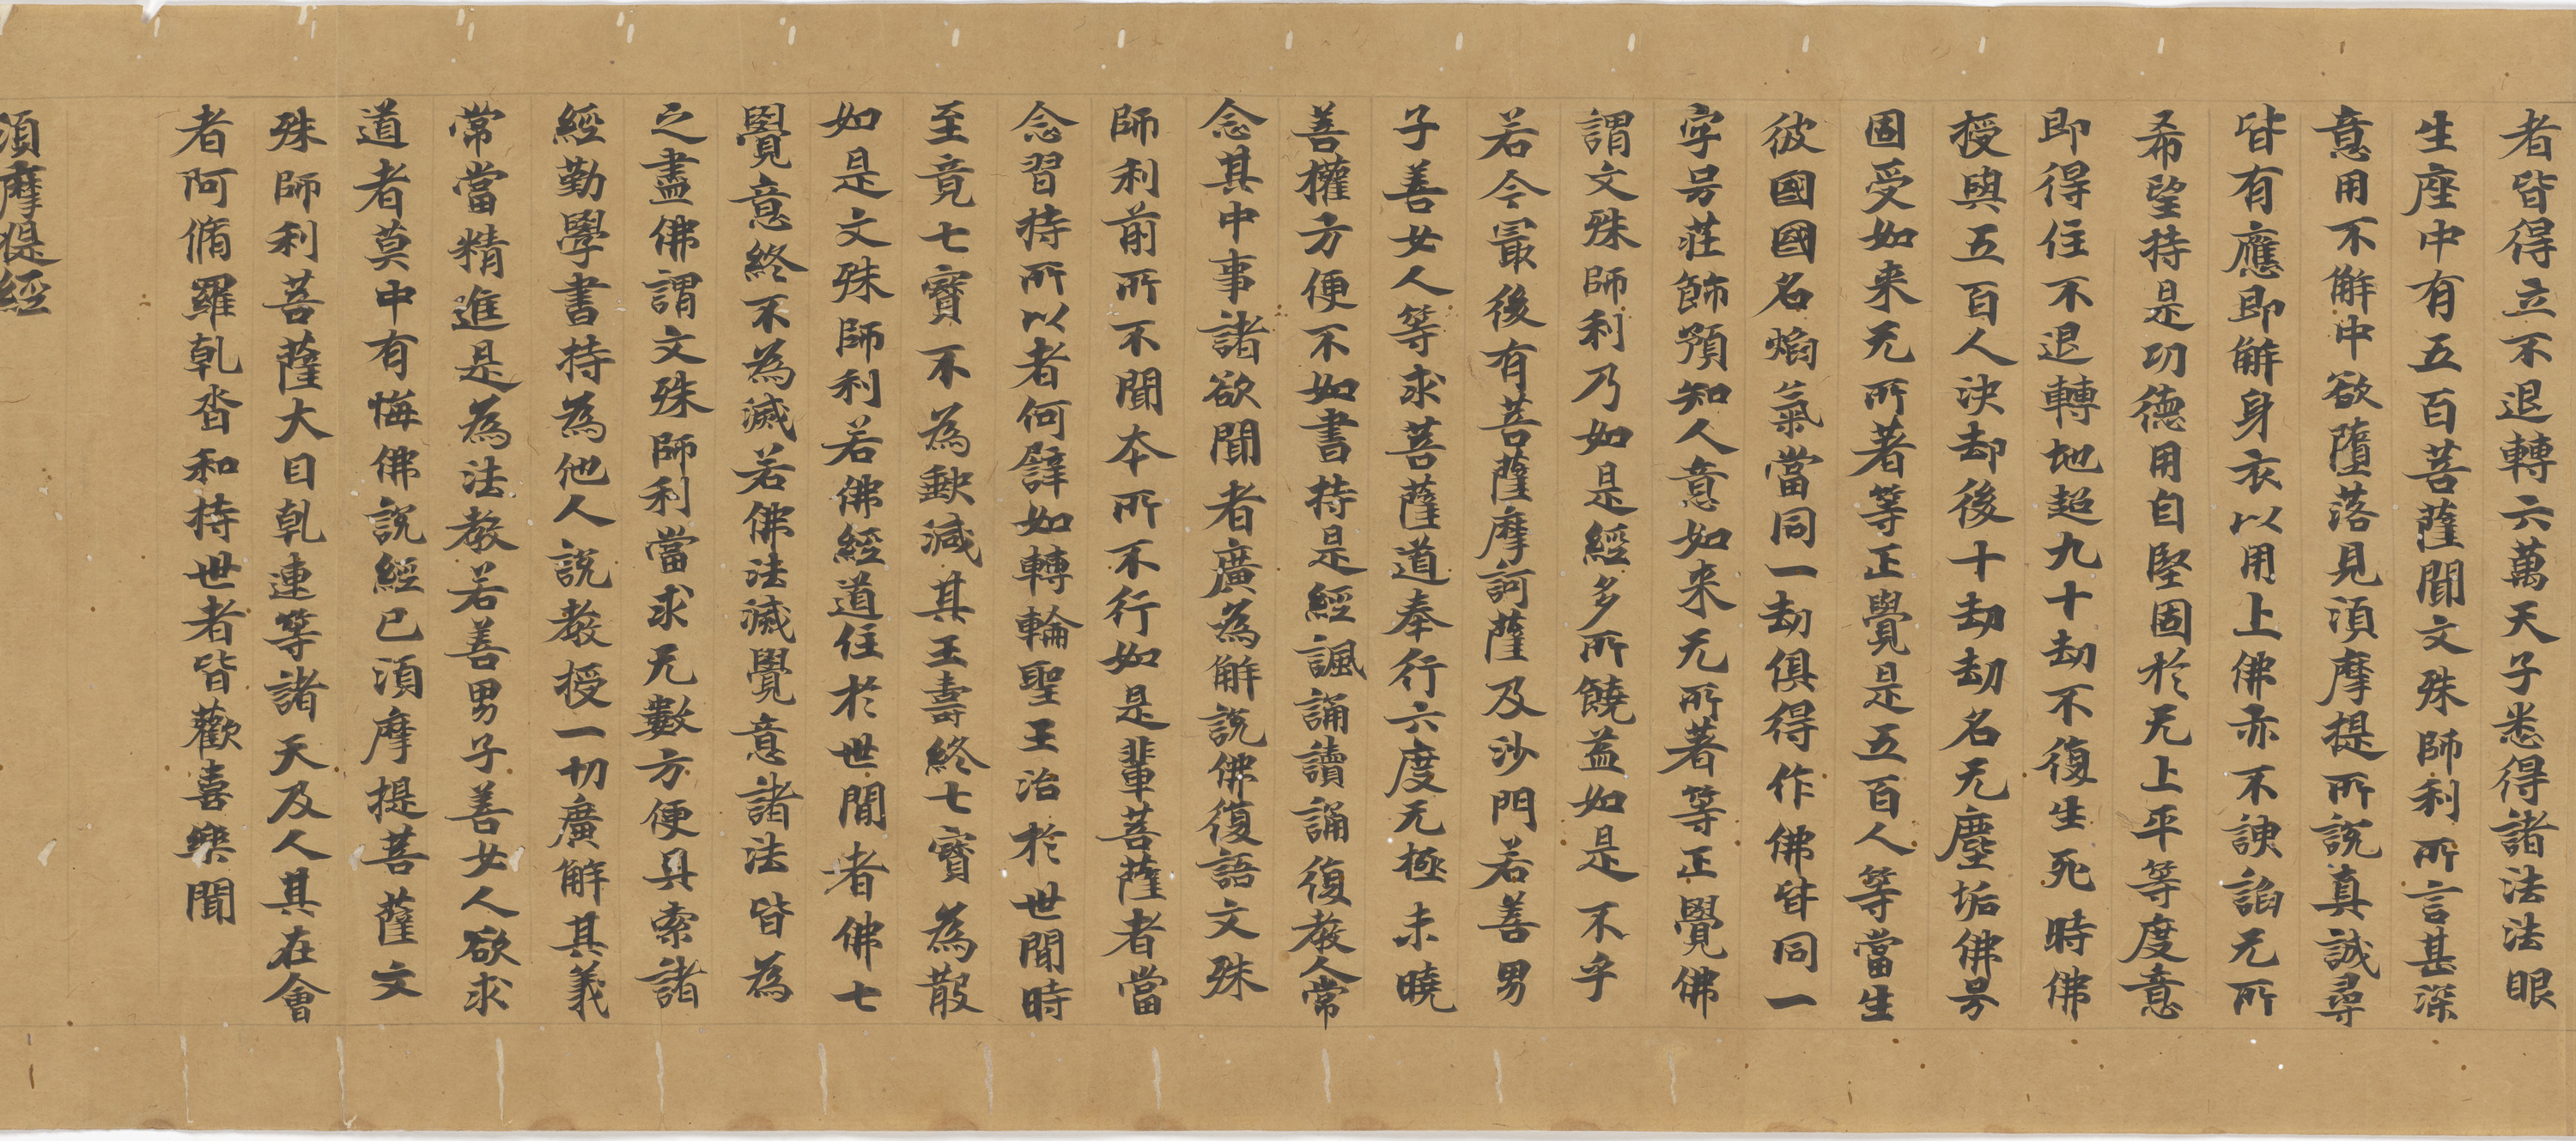 者皆得立不退轉六萬天子悉得諸法法眼
生座中有五百菩薩聞文殊師利所言甚深
意用不解中欲墮落見湏摩提所說真誠尋
皆有應即解身衣以用上佛亦不諛諂无所
希望持是功德用自堅固於无上平等度意
即得住不退轉地超九十劫不復生死時佛
授與五百人決却後十劫劫名无塵垢佛号
固受如来无所著等正覺是五百人等當生
彼國國名焰氣當同一劫俱得作佛皆同一
字号莊飾預知人意如来无所著等正覺佛
謂文殊師利乃如是經多所饒益如是不乎
若今㝡後有菩薩摩訶薩及沙門若善男
子善女人等求菩薩道奉行六度无極未曉
善權方便不如書持是經諷誦讀誦復教人常
念其中事諸欲聞者廣為解說佛復語文殊
師利前所不聞本所不行如是輩菩薩者當
念習持所以者何譬如轉輪聖王治於世間時
至竟七寶不為缺減其王壽終七寶為散
如是文殊師利若佛經道住於世間者佛七
覺意終不為滅若佛法滅覺意諸法皆為
之盡佛謂文殊師利當求无數方便具索諸
經勤學書持為他人說教授一切廣解其義
常當精進是為法教若善男子善女人欲求
道者莫中有悔佛說經已湏摩提菩薩文
殊師利菩薩大目乹連等諸天及人其在會
者阿脩羅乹沓和持世者皆歡喜樂聞
湏摩提經